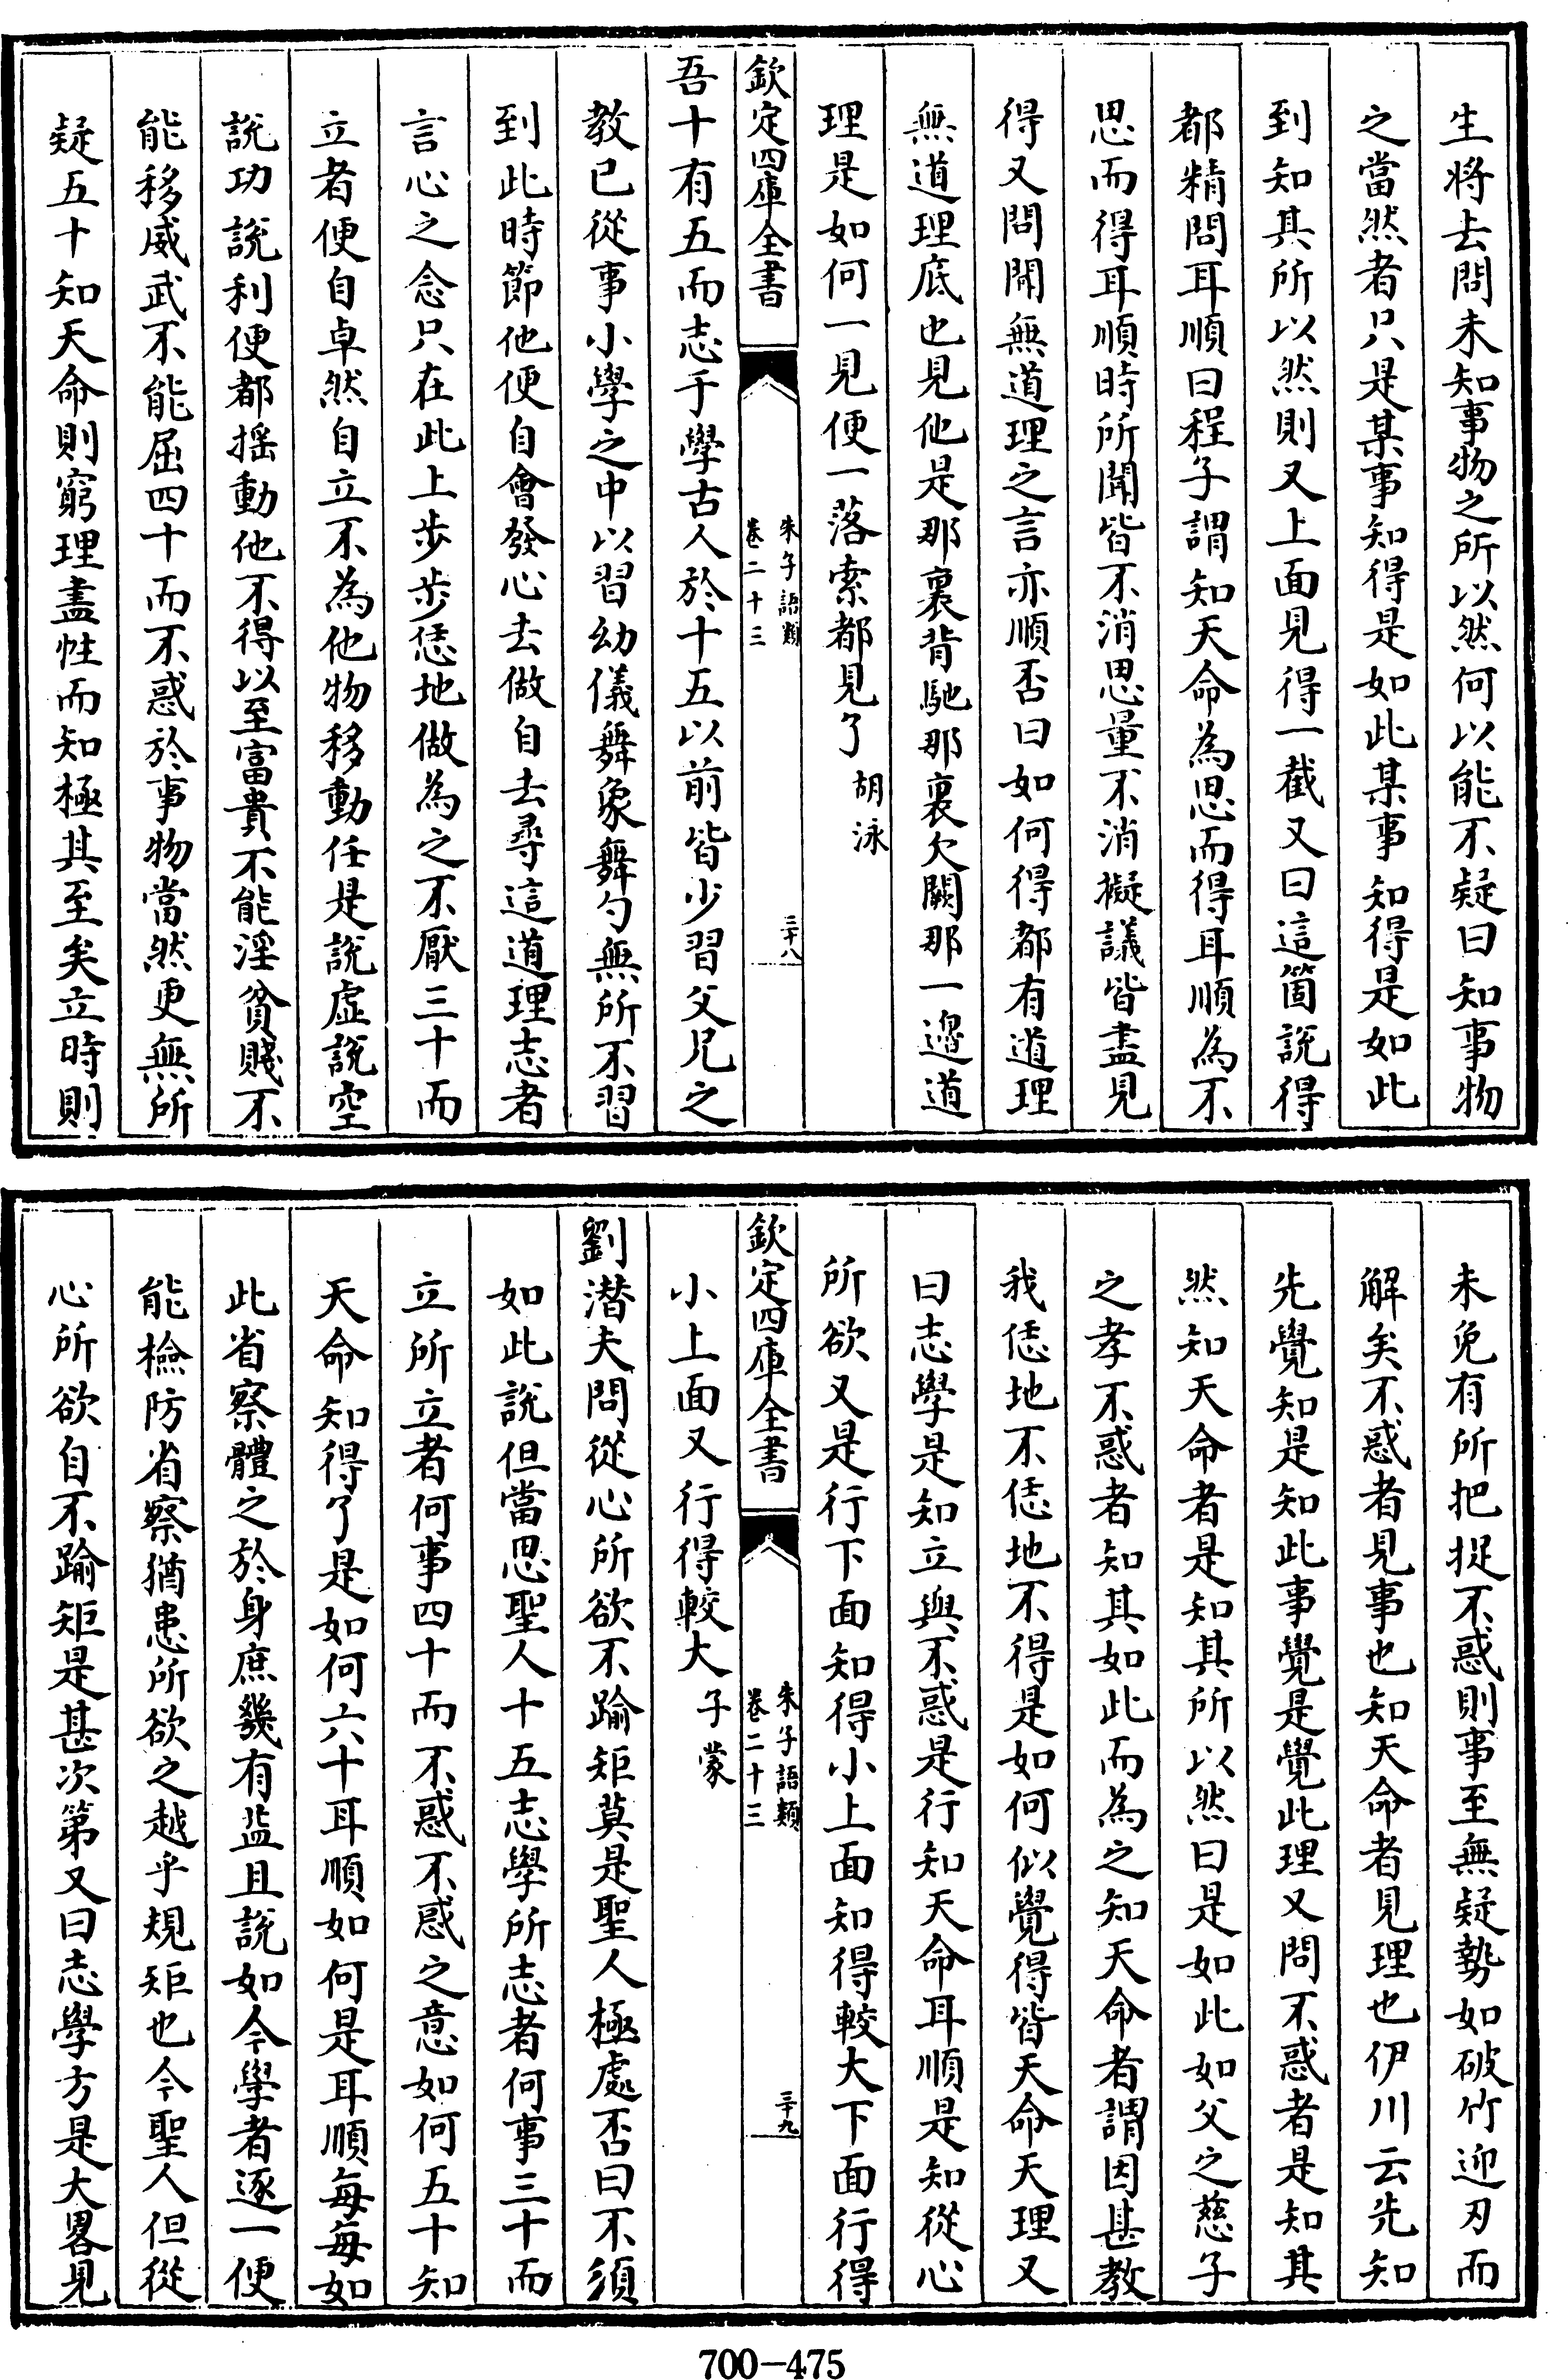 生將去問未知事物之所以然何以能不疑曰知事物
之當然者只是某事知得是如此某事知得是如此
到知其所以然則又上面見得一截又曰這箇說得
都精問耳順曰程子謂知天命為思而得耳順為不
思而得耳順時所聞皆不消思量不消擬議皆盡見
得又問聞無道理之言亦順否曰如何得都有道理
無道理底也見他是那裏背馳那裏欠闕那一邊道
理是如何一見便一落索都見了胡泳
欽定四庫全書
朱子語類
卷二十三
三十八
吾十有五而志于學古人於十五以前皆少習父兄之
教已從事小學之中以習幼儀舞象舞勺無所不習
到此時節他便自會發心去做自去尋這道理志者
言心之念只在此上步步恁地做為之不厭三十而
立者便自卓然自立不為他物移動任是說虛說空
說功說利便都揺動他不得以至富貴不能淫貧賤不
能移威武不能屈四十而不惑於事物當然更無所
疑五十知天命則窮理盡性而知極其至矣立時則
未免有所把捉不惑則事至無疑勢如破竹迎刃而
解矣不惑者見事也知天命者見理也伊川云先知
先覺知是知此事覺是覺此理又問不惑者是知其
然知天命者是知其所以然曰是如此如父之慈子
之孝不惑者知其如此而為之知天命者謂因甚教
我恁地不恁地不得是如何似覺得皆天命天理又
曰志學是知立與不惑是行知天命耳順是知從心
所欲又是行下面知得小上面知得較大下面行得
欽定四庫全書
朱子語類
卷二十三
三十九
小上面又行得較大子蒙
劉潛夫問從心所欲不踰矩莫是聖人極處否曰不須
如此說但當思聖人十五志學所志者何事三十而
立所立者何事四十而不惑不惑之意如何五十知
天命知得了是如何六十耳順如何是耳順每每如
此省察體之於身庶幾有益且說如今學者逐一便
能檢防省察猶患所欲之越乎規矩也今聖人但從
心所欲自不踰矩是甚次第又曰志學方是大畧見
700-475